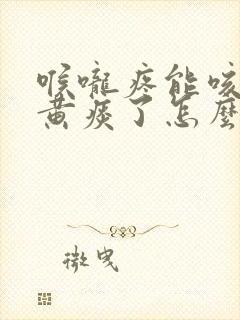 喉嚨疼能咳
黃痰了怎麼
微曳